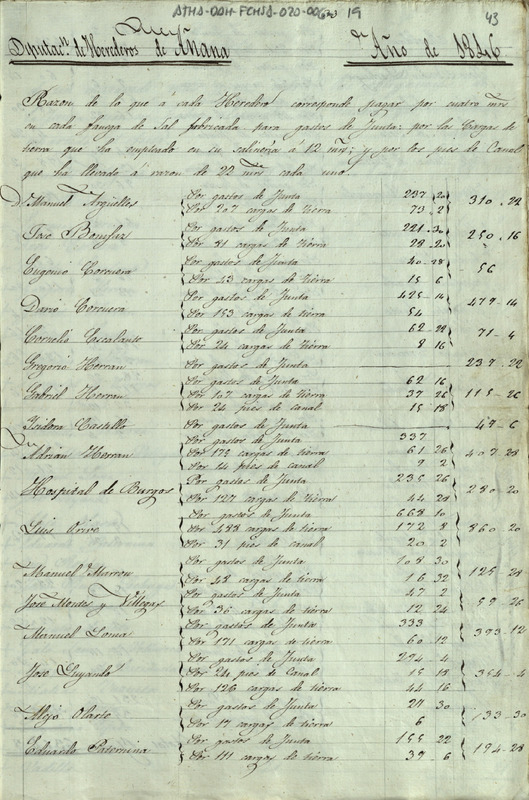 ATHA-DAH-FCHSA-020-006-19
43
Diputac.n de Herederos de Añana
Año de 1846
Razon de lo que á cada Heredero corresponde pagar por cuatro mrs
en cada fanega de sal fabricada para gastos de Junta: por las Cargas de
tierra que ha empleado en su salineria á 12 mrs; y por los pies de Canal
que ha llevado á razon de 22 mrs cada uno.
Manuel Arguelles
Por gastos de Junta 237 . 20
Por 207 cargas de tierra 73 . 2
310 . 22
Jose Bonifaz
Por gastos de Junta 221 . 30
Por 81 cargas de tierra 28 . 20
250 . 16
Eugenio Corcuera
Por gastos de Junta 40 - 28
Por 43 cargas de tierra 15 6
56
Dario Corcuera
Por gastos de Junta 425 - 14
Por 153 cargas de tierra 54
479 - 14
Cornelio Escalante
Por gastos de Junta 62 - 22
Por 24 cargas de tierra 8 16
71 - 4
Gregorio Herran
Por gastos de Junta 237 . 22
Gabriel Herran
Por gastos de Junta 62 16
Por 107 cargas de tierra 37 26
Por 24 pies de canal 15 18
115 - 26
Isidora Castillo
Por gastos de Junta 48 - 6
Adrian Herran
Por gastos de Junta 337
Por 175 cargas de tierra 61 26
Por 14 pies de canal 9 2
407 28
Hospital de Burgos
Por gastos de Junta 235 26
Por 127 cargas de tierra 44 28
280 - 20
Luis Orive
Por gastos de Junta 668 10
Por 488 cargas de tierra 172 8
Por 31 pies de canal 20 2
860 20
Manuel Marron
Por gastos de Junta 108 30
Por 48 cargas de tierra 16 32
125 - 28
Jose Montes y Villegas
Por gastos de Junta 47 2
Por 36 cargas de tierra 12 24
59 - 26
Manuel Loma
Por gastos de Junta 333
Por 171 cargas de tierra 60 12
393 - 12
Jose Luyando
Por gastos de Junta 294 4
Por 24 pies de Canal 15 18
Por 126 cargas de tierra 44 16
354 - 4
Alejo Olarte
Por gastos de Junta 27 30
Por 17 cargas de tierra 6
33 - 30
Eduardo Paternina
Por gastos de Junta 155 22
Por 111 cargas de tierra 39 - 6
194 - 28